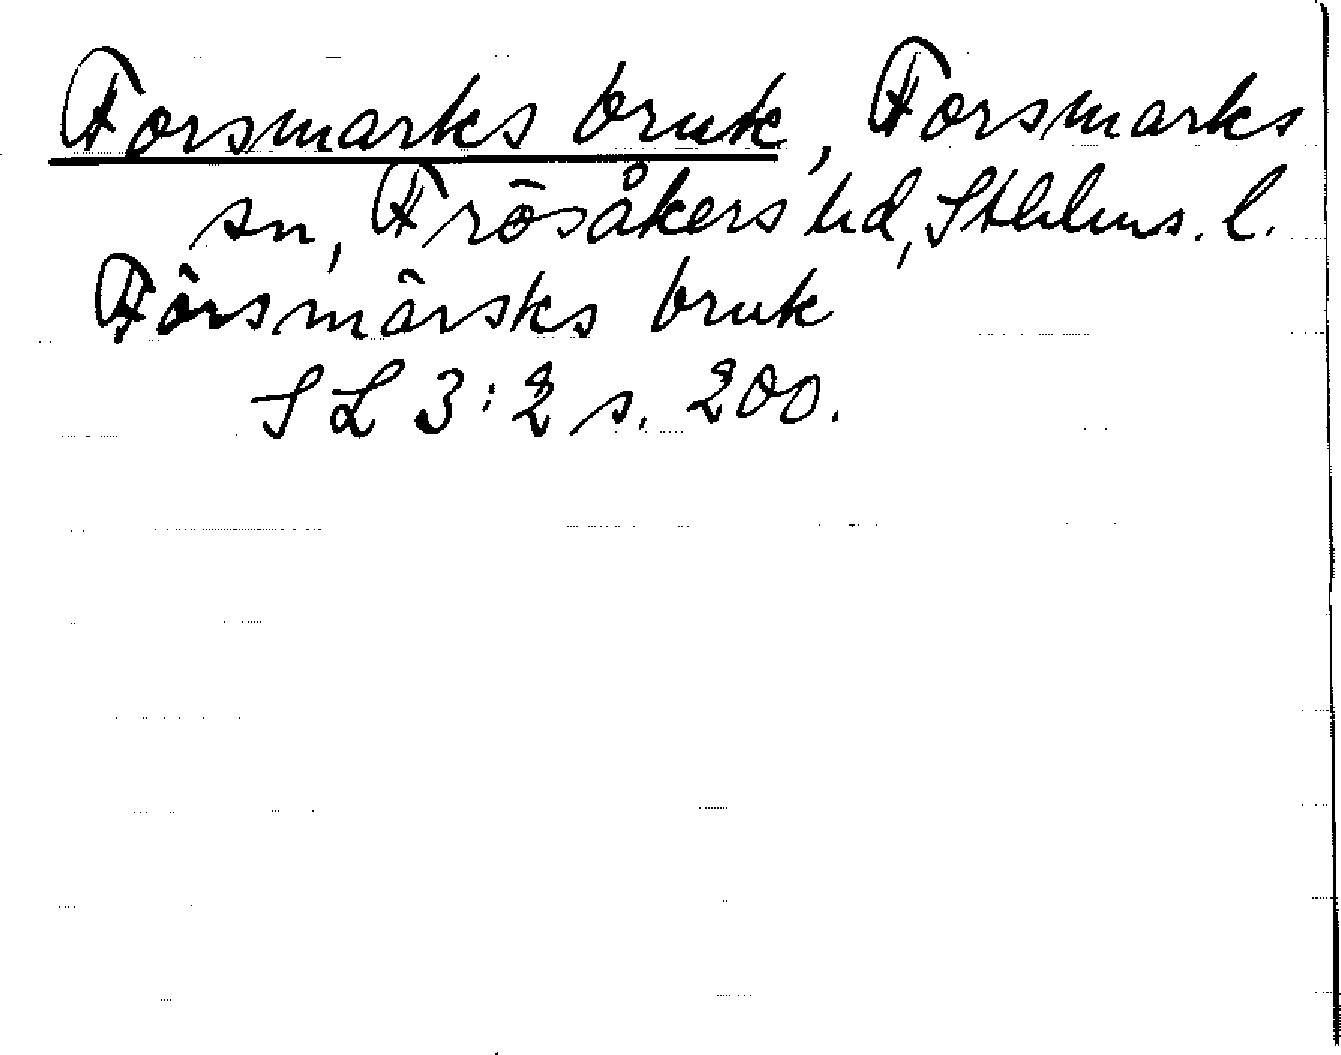 Forsmarks bruk, Forsmarks
sn, Frösåkers hd, Sthlms. l.
Församärsks bruk
SL 3:2 s. 200.